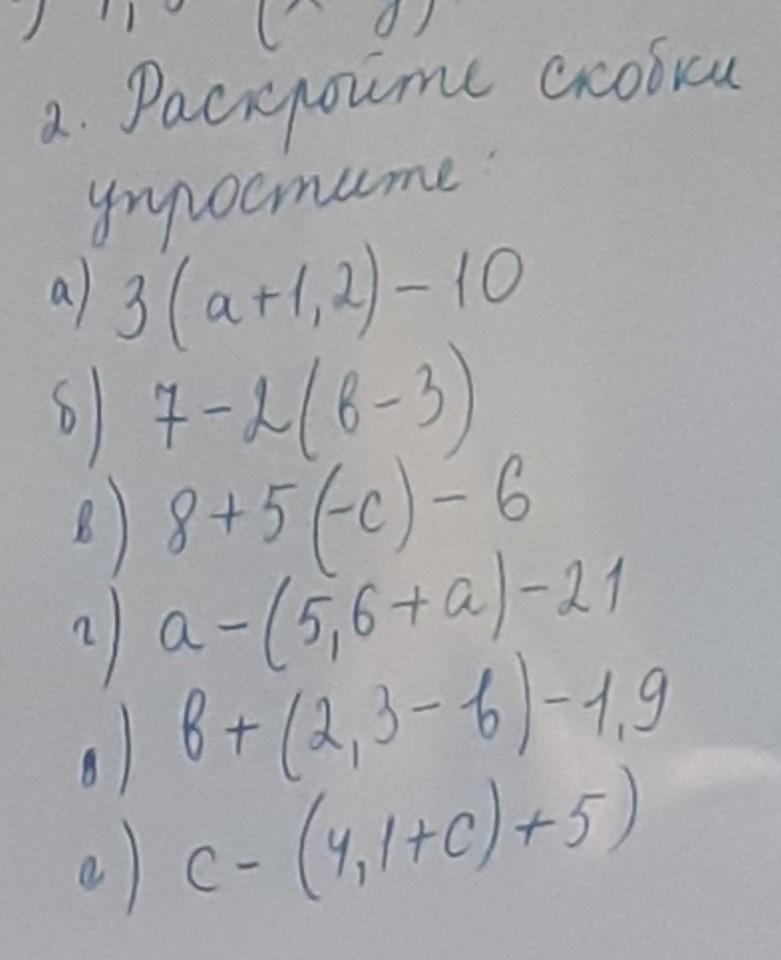 2. Раскройте скобки
упростите:
а) 3(a+1,2)-10
б) 7-2(в-3)
в) 8+5(-с)-6
г) а-(5,6+а)-21
в+(2,3-в)-1,9
е) с-(4,1+с)+5)